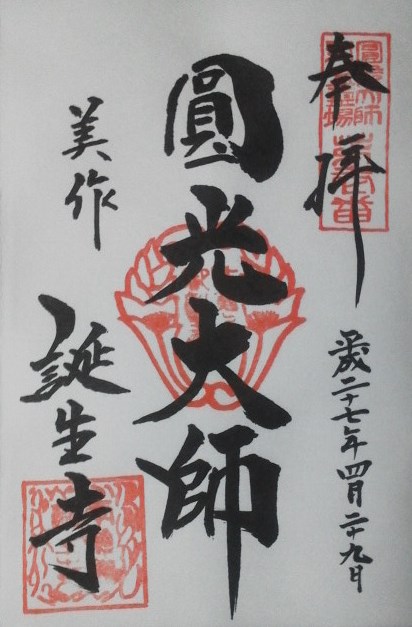 奉拝
平成二十七年四月二十九日
圓光大師
美作
誕生寺